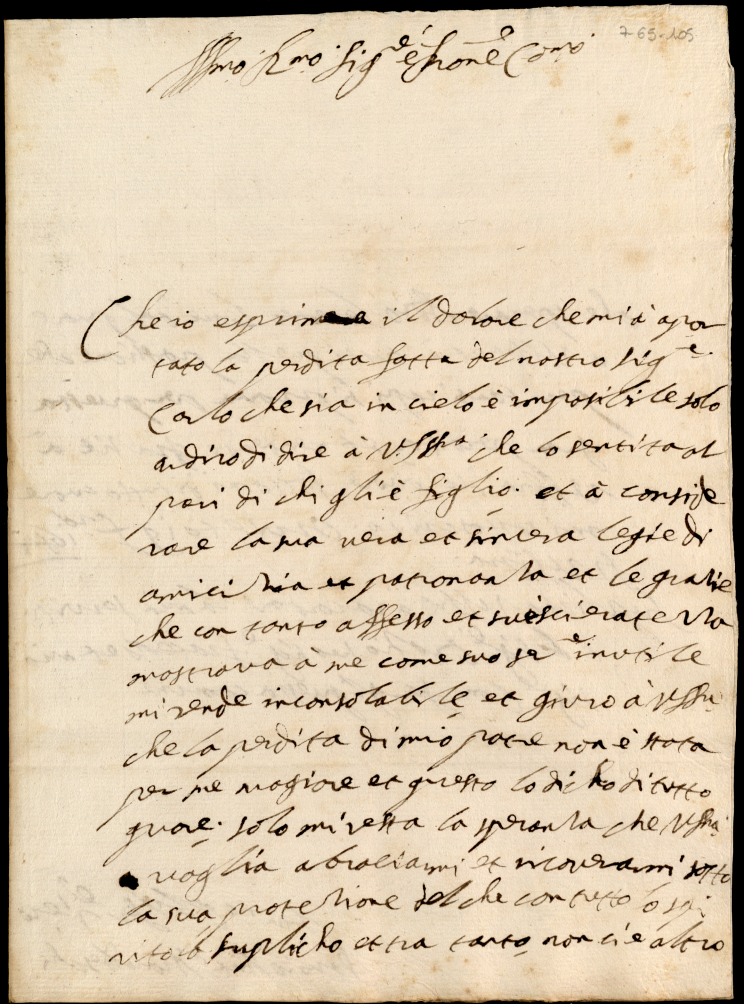 7-65-105
Illmo Rmo Sigre è Pron̄e Comō
Che io esprima il dolore che mi à apor
tato la perdita fatta del nostro Sigre
Carlo che sia in cielo è imposibile solo
ardiro di dire à V.S.Illma che lo sentita al
pari di chi gli è figlio. et à conside
rare la sua vera et sincera legie di
amicitia et patronanza et le gratie
che con tanto affetto et suisceratezza
mostrava à me come suo sere inutile
mi rende inconsolabile et giuro à V.S.Illma
che la perdita di mio patre non è stata
per me magiore et questo lo dicho di tutto
quore. solo mi resta la speranza che V.S.Illma
voglia abraciarmi et ricoverarmi sotto
la sua protetione del che con tutto lo spi
rito la suplicho et tra tanto non ci è altro